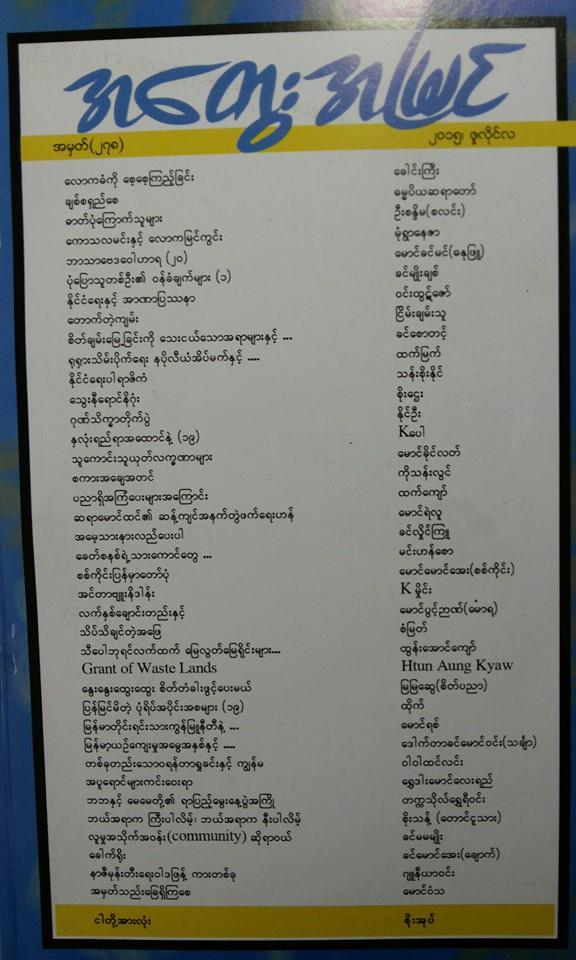 အတွေးအမြင်
အမှတ်(၂၇၈) ၂၀၁၅၊ ဇူလိုင်လ
လောကဓံကို စေ့စေ့ကြည့်ခြင်း ခေါင်းကြီး
ချစ်စရှည်စေ ဓမ္မပိယဆရာတော်
ဓာတ်ပုံကြောက်သူများ ဦးစန္ဒိမ(စလင်း)
ကောသလမင်းနှင့် လောကမြင်ကွင်း မုံရွာနေဇာ
ဘာသာဗေဒဝေါဟာရ (၂၀) မောင်ခင်မင်(ဓနုဖြူ)
ပုံပြောသူတစ်ဦး၏ ဝန်ခံချက်များ (၁) ခင်မျိုးချစ်
နိုင်ငံရေးနှင့် အာဏာပြဿနာ ဝင်းထွဋ်ဇော်
တောက်တဲ့ကျမ်း ငြိမ်းချမ်းသူ
စိတ်ချမ်းမြေ့ခြင်းကို သေးငယ်သောအရာများနှင့် ... ခင်စောတင့်
ရုရှားသိမ်းပိုက်ရေး နပိုလီယံအိပ်မက်နှင့် .... ထက်မြက်
နိုင်ငံရေးပါရာဇိကံ သန်းစိုးနိုင်
သွေးနီရောင်နိဂုံး စိုးဌေး
ဂုဏ်သိက္ခာတိုက်ပွဲ နိုင်ဦး
နှလုံးရည်ရာအထောင်နဲ့ (၁၉) Kပေါ
သူကောင်းသူယုတ်လက္ခဏာများ မောင်ခိုင်လတ်
စကားအချေအတင် ကိုသန်းလွင်
ပညာရှိအကြံပေးများအကြောင်း ထက်ကျော်
ဆရာမောင်ထင်၏ ဆန့်ကျင်အနက်တွဲဖက်ရေးဟန် မောင်ရဲလူ
အမေ့သားနားလည်ပေးပါ ခင်လှိုင်ကြူ
ခေတ်စနစ်ရဲ့သားကောင်တွေ ... မင်းဟန်စော
စစ်ကိုင်းပြန်မှာတော်ပုံ မောင်မောင်အေး(စစ်ကိုင်း)
အင်တာဗျူးနိဒါန်း K မှိုင်း
လက်နှစ်ချောင်းတည်းနှင့် မောင်ပွင့်ဉာဏ်(မောရ)
သိပ်သိချင်တဲ့အဖြေ စံမြတ်
သီပေါဘုရင်လက်ထက် မြေလွတ်မြေရိုင်းများ... ထွန်းအောင်ကျော်
Grant of Waste Lands Htun Aung Kyaw
နွေးနွေးထွေးထွေး စိတ်တံခါးဖွင့်ပေးမယ် မြမြဆွေ(စိတ်ပညာ)
ပြန်မြင်မိတဲ့ ပုံရိပ်အပိုင်းအစများ (၁၉) ထိုက်
မြန်မာတိုင်းရင်းသားကွန်မြူနီတီနဲ့ ... မောင်ရစ်
မြန်မာ့ယဉ်ကျေးမှုအမွေအနှစ်နှင့် .... ဒေါက်တာခင်မောင်ဝင်း(သင်္ချာ)
တစ်ခုတည်းသောဝရန်တာရှုခင်းနှင့် ကျွန်မ ဝါဝါထင်လင်း
အပူရောင်များကင်းဝေးရာ ရွှေဒါးမောင်လေးရည်
ဘဘနှင့် မေမေတို့၏ ရာပြည့်မွေးနေ့ပွဲအကြို တက္ကသိုလ်ရွှေရီဝင်း
ဘယ်အရာက ကြီးပါလိမ့်၊ ဘယ်အရာက နီးပါလိမ့် စိုးသန့် (တောင်ငူသား)
လူမှုအသိုက်အဝန်း(community) ဆိုရာဝယ် ခင်မမမျိုး
ခေါက်ရိုး ခင်မောင်အေး(ချောက်)
နာဇီမုန်းတီးရေးဝါဒဖြန့် ကားတစ်ခု ဂျူနီယာဝင်း
အမှတ်သည်းခြေရှိကြစေ မောင်ဝံသ
ငါတို့အားလုံး စိုးအုပ်